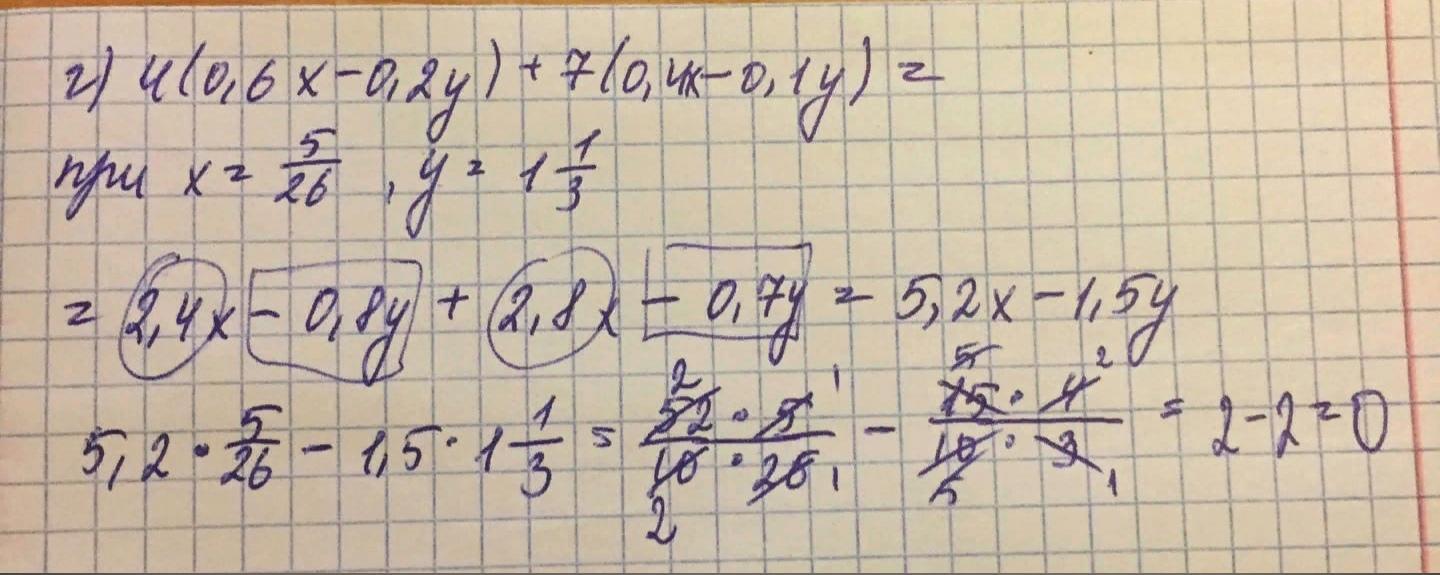 г) 4(0,6x-0,2y)+7(0,4x-0,1y)=
при x=5/26, y=1 1/3
=2,4x-0,8y+2,8x-0,7y=5,2x-1,5y
5,2·5/26-1,5·1 1/3=(52·5)/(10·26)-(15·4)/(10·3)=2-2=0